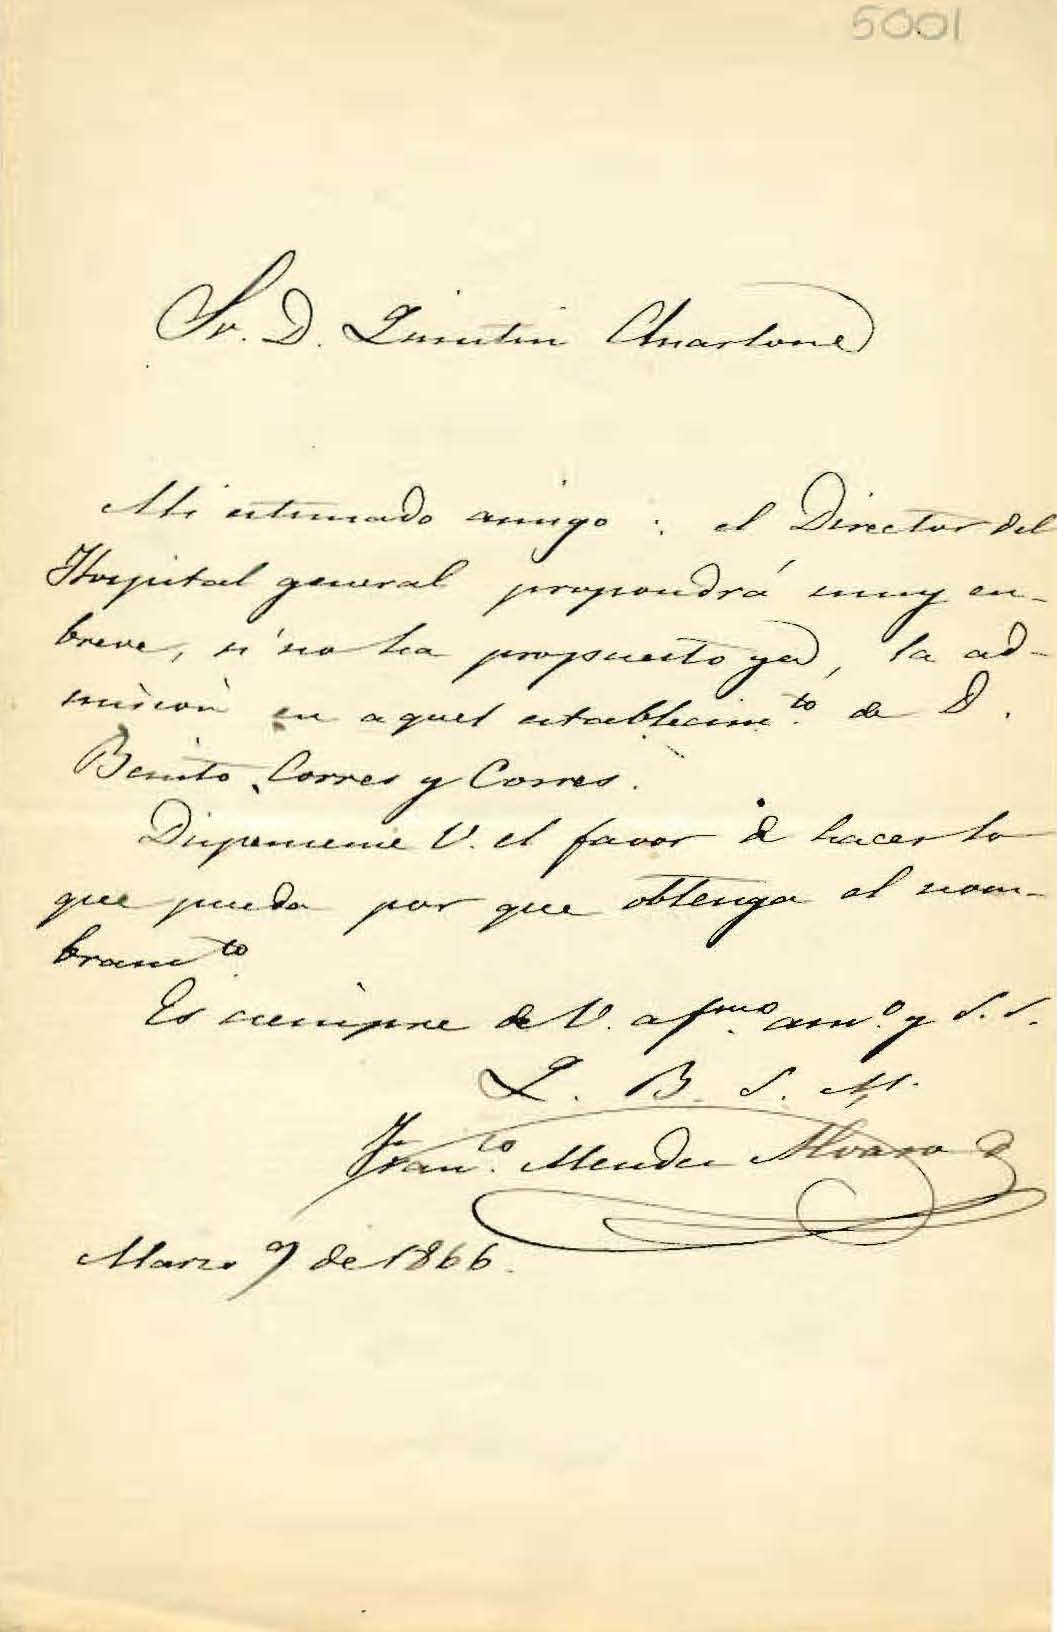 5001
Sr. D. Quintin Chiarlone
Mi estimado amigo: el Director del
Hospital general propondrá muy en-
breve, si no ha propuesto ya, la ad-
misión en aquel establecim.to de D.
Benito Corres y Corres.
Dispenseme V. el favor de hacer lo
que pueda por que obtenga el nom-
bram.to
Es siempre de V. afmo. am.o y S. S.
Q. B. S. M.
Fran.co Mendez Alvaro
Marzo 9 de 1866.